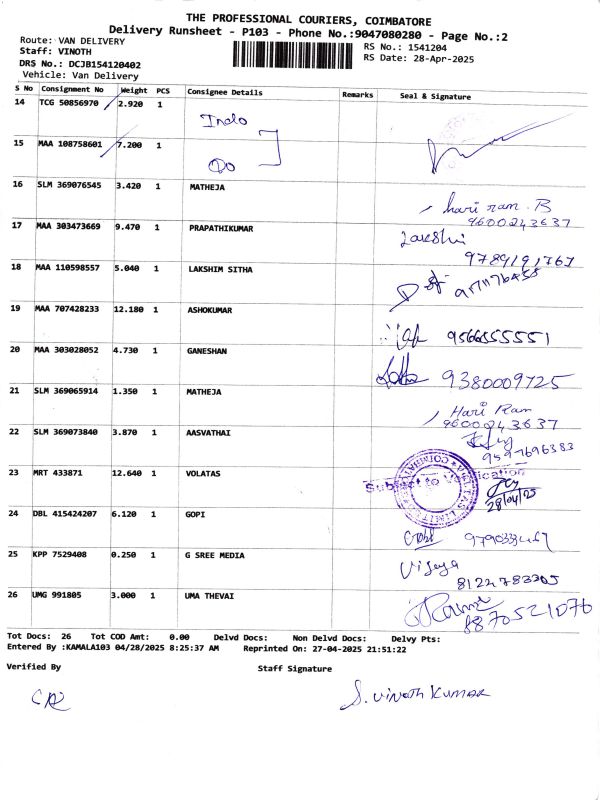 THE PROFESSIONAL COURIERS, COIMBATORE
Delivery Runsheet - P103 - Phone No.:9047080280 - Page No.:2
Route: VAN DELIVERY
RS No.: 1541204
Staff: VINOTH
RS Date: 28-Apr-2025
DRS No.: DCJB154120402
Vehicle: Van Delivery
S No Consignment No Weight PCS Consignee Details Remarks Seal & Signature
14 TCG 50856970 2.920 1 Indo
15 MAA 108758601 7.200 1 Do
16 SLM 369076545 3.420 1 MATHEJA hari ram. B
9600243637
17 MAA 303473669 9.470 1 PRAPATHIKUMAR Lakshi
9789191767
18 MAA 110598557 5.040 1 LAKSHIM SITHA
19 MAA 707428233 12.180 1 ASHOKUMAR 9566555551
20 MAA 303028052 4.730 1 GANESHAN 9380009725
21 SLM 369065914 1.350 1 MATHEJA Hari Ram
9600243637
22 SLM 369073840 3.870 1 AASVATHAI
9597696383
23 MRT 433871 12.640 1 VOLATAS Subject to Verification
28/04/25
24 DBL 415424207 6.120 1 GOPI Gobi
25 KPP 7529408 0.250 1 G SREE MEDIA Vijaya
8124783305
26 UMG 991805 3.000 1 UMA THEVAI
8870521076
Tot Docs: 26 Tot COD Amt: 0.00 Delvd Docs: Non Delvd Docs: Delvy Pts:
Entered By :KAMALA103 04/28/2025 8:25:37 AM Reprinted On: 27-04-2025 21:51:22
Verified By Staff Signature
S. Vinoth Kumar